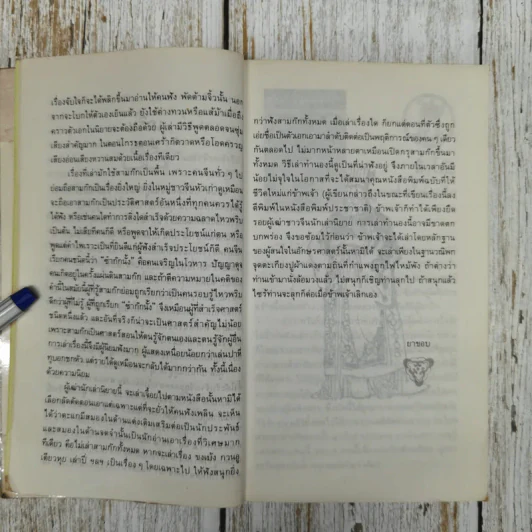 เรื่องจับใจก็จะได้พลิกขึ้นมาอ่านให้คนฟัง พัดด้ามจิ้วนั้น นอก
จากจะโบกให้ตัวเองเย็นแล้ว ยังใช้ต่างทวนหรือแส้ม้าเมื่อถึง
คราวตัวเอกในนิยายจะต้องถือด้วย ผู้เล่ามีวิธีพูดตลอดจนทุ่ม
เสียงสำคัญมาก ในตอนโกรธตอนเศร้าก็ตวาดหรือโอดครวญ
เสียงอ่อนเสียงหวานสมด้วยเนื้อเรื่องทีเดียว
เรื่องที่เล่ามักใช้สามก๊กเป็นพื้น เพราะคนจีนทั่ว ๆ ไป
ย่อมถือสามก๊กเป็นเรื่องยิ่งใหญ่ ยิ่งในหมู่ชาวจีนหัวเก่าดูเหมือน
จะถือเอาสามก๊กเป็นประวัติศาสตร์อันหนึ่งที่ทุกคนควรได้รู้
ได้ฟัง หรือเช่นคนใดทำการสิ่งใดสำเร็จด้วยความฉลาดไหวพริบ
เป็นต้น ไม่เสียทีคนก็ดี หรือพูดจาให้เกิดประโยชน์แก่ตน หรือ
พูดแต่คำไพเราะที่เป็นยินดีแก่ผู้ฟังสำเร็จประโยชน์ก็ดี คนจีน
เรียกคนชนิดนี้ว่า "ซำก๊กนั้ง" คือคนเจริญในโวหาร ปัญญาดุจ
คนเกิดอยู่ในครั้งแผ่นดินสามก๊ก และถ้าตีความหมายในคติของ
คำนี้ในสมัยนี้ผู้รู้สามก๊กย่อมถูกเรียกว่าเป็นคนรอบรู้ไหวพริบ
ดีกว่าผู้ที่ไม่รู้ ผู้ที่ถูกเรียก "ซำก๊กนั้ง" จึงเหมือนผู้ที่สำเร็จศาสตร์
ชนิดหนึ่งแล้ว และอันที่จริงก็น่าจะเป็นศาสตร์สำคัญไม่น้อย
เพราะสามก๊กเป็นศาสตร์สอนให้คนรู้จักตนเองและคนรู้จักผู้อื่น
การเล่าเรื่องนี้จึงมีผู้นิยมฟังมาก ผู้แสดงเหนื่อยน้อยกว่าเล่นปาหี่
ทุบอกชกตัว แต่รายได้ดูเหมือนจะกลับได้มากกว่ากัน ทั้งนี้เนื่อง
ด้วยความนิยม
ผู้เฒ่านักเล่านิยายนี้ จะเล่าเรื่อยไปตามหนังสือนั้นหามิได้
เลือกลัดตัดตอนเอาแต่เฉพาะแต่ที่จะยั่วให้คนฟังเพลิน จะเห็น
ได้ว่าตะแกมีสมองในด้านแต่งเติมเสริมต่อเป็นนักประพันธ์
และสมองในด้านจดจำนั้นเป็นนักอ่านเอาเรื่องที่วิเศษมาก
ทีเดียว คือไม่เล่าสามก๊กทั้งหมด หากจะเล่าเรื่อง ขงเบ้ง กวนอู
เตียวหุย เล่าปี่ ฯลฯ เป็นเรื่อง ๆ โดยเฉพาะไป ให้ฟังสนุกยิ่ง
กว่าฟังสามก๊กทั้งหมด เมื่อเล่าเรื่องใด ก็ยกแต่ตอนที่ตัวซึ่งถูก
เอ่ยชื่อเป็นตัวเอกเอามาลำดับติดต่อเป็นพฤติการณ์ของคน ๆ เดียว
กันตลอดไป ไม่มากหน้าหลายตาเหมือนเปิดกรุสามก๊กขึ้นมา
ทั้งหมด วิธีเล่าทำนองนี้ดูเป็นที่น่าฟังอยู่ จึงภายในเวลาอันมี
น้อยไม่จุใจในโอกาสที่จะได้สมนาคุณหนังสือพิมพ์ฉบับที่ให้
ชีวิตใหม่แก่ข้าพเจ้า (ผู้เขียนกล่าวถึงในขณะที่เขียนเรื่องนี้ลง
ตีพิมพ์ในหนังสือพิมพ์ประชาชาติ) ข้าพเจ้าก็ทำได้เพียงยึด
รอยผู้เฒ่าชาวจีนนักเล่านิยาย การเล่าทำนองนี้อาจมีขาดตก
บกพร่อง จึงขอซ้อมไว้ก่อนว่า ข้าพเจ้าจะได้เล่าโดยหลักฐาน
ของผู้สนใจในอักษรศาสตร์นั้นหามิได้ จะเล่าเพียงในฐานวณิพก
จุดตะเกียงปูผ้าแดงตามถิ่นที่กำแพงถูกไฟไหม้พัง ถ้าต่างว่า
ท่านเข้ามานั่งล้อมวงแล้ว ไม่สนุกก็เชิญท่านลุกไป ถ้าสนุกแล้ว
ไซร้ท่านจะลุกก็ต่อเมื่อข้าพเจ้าเลิกเอง
ยาขอบ